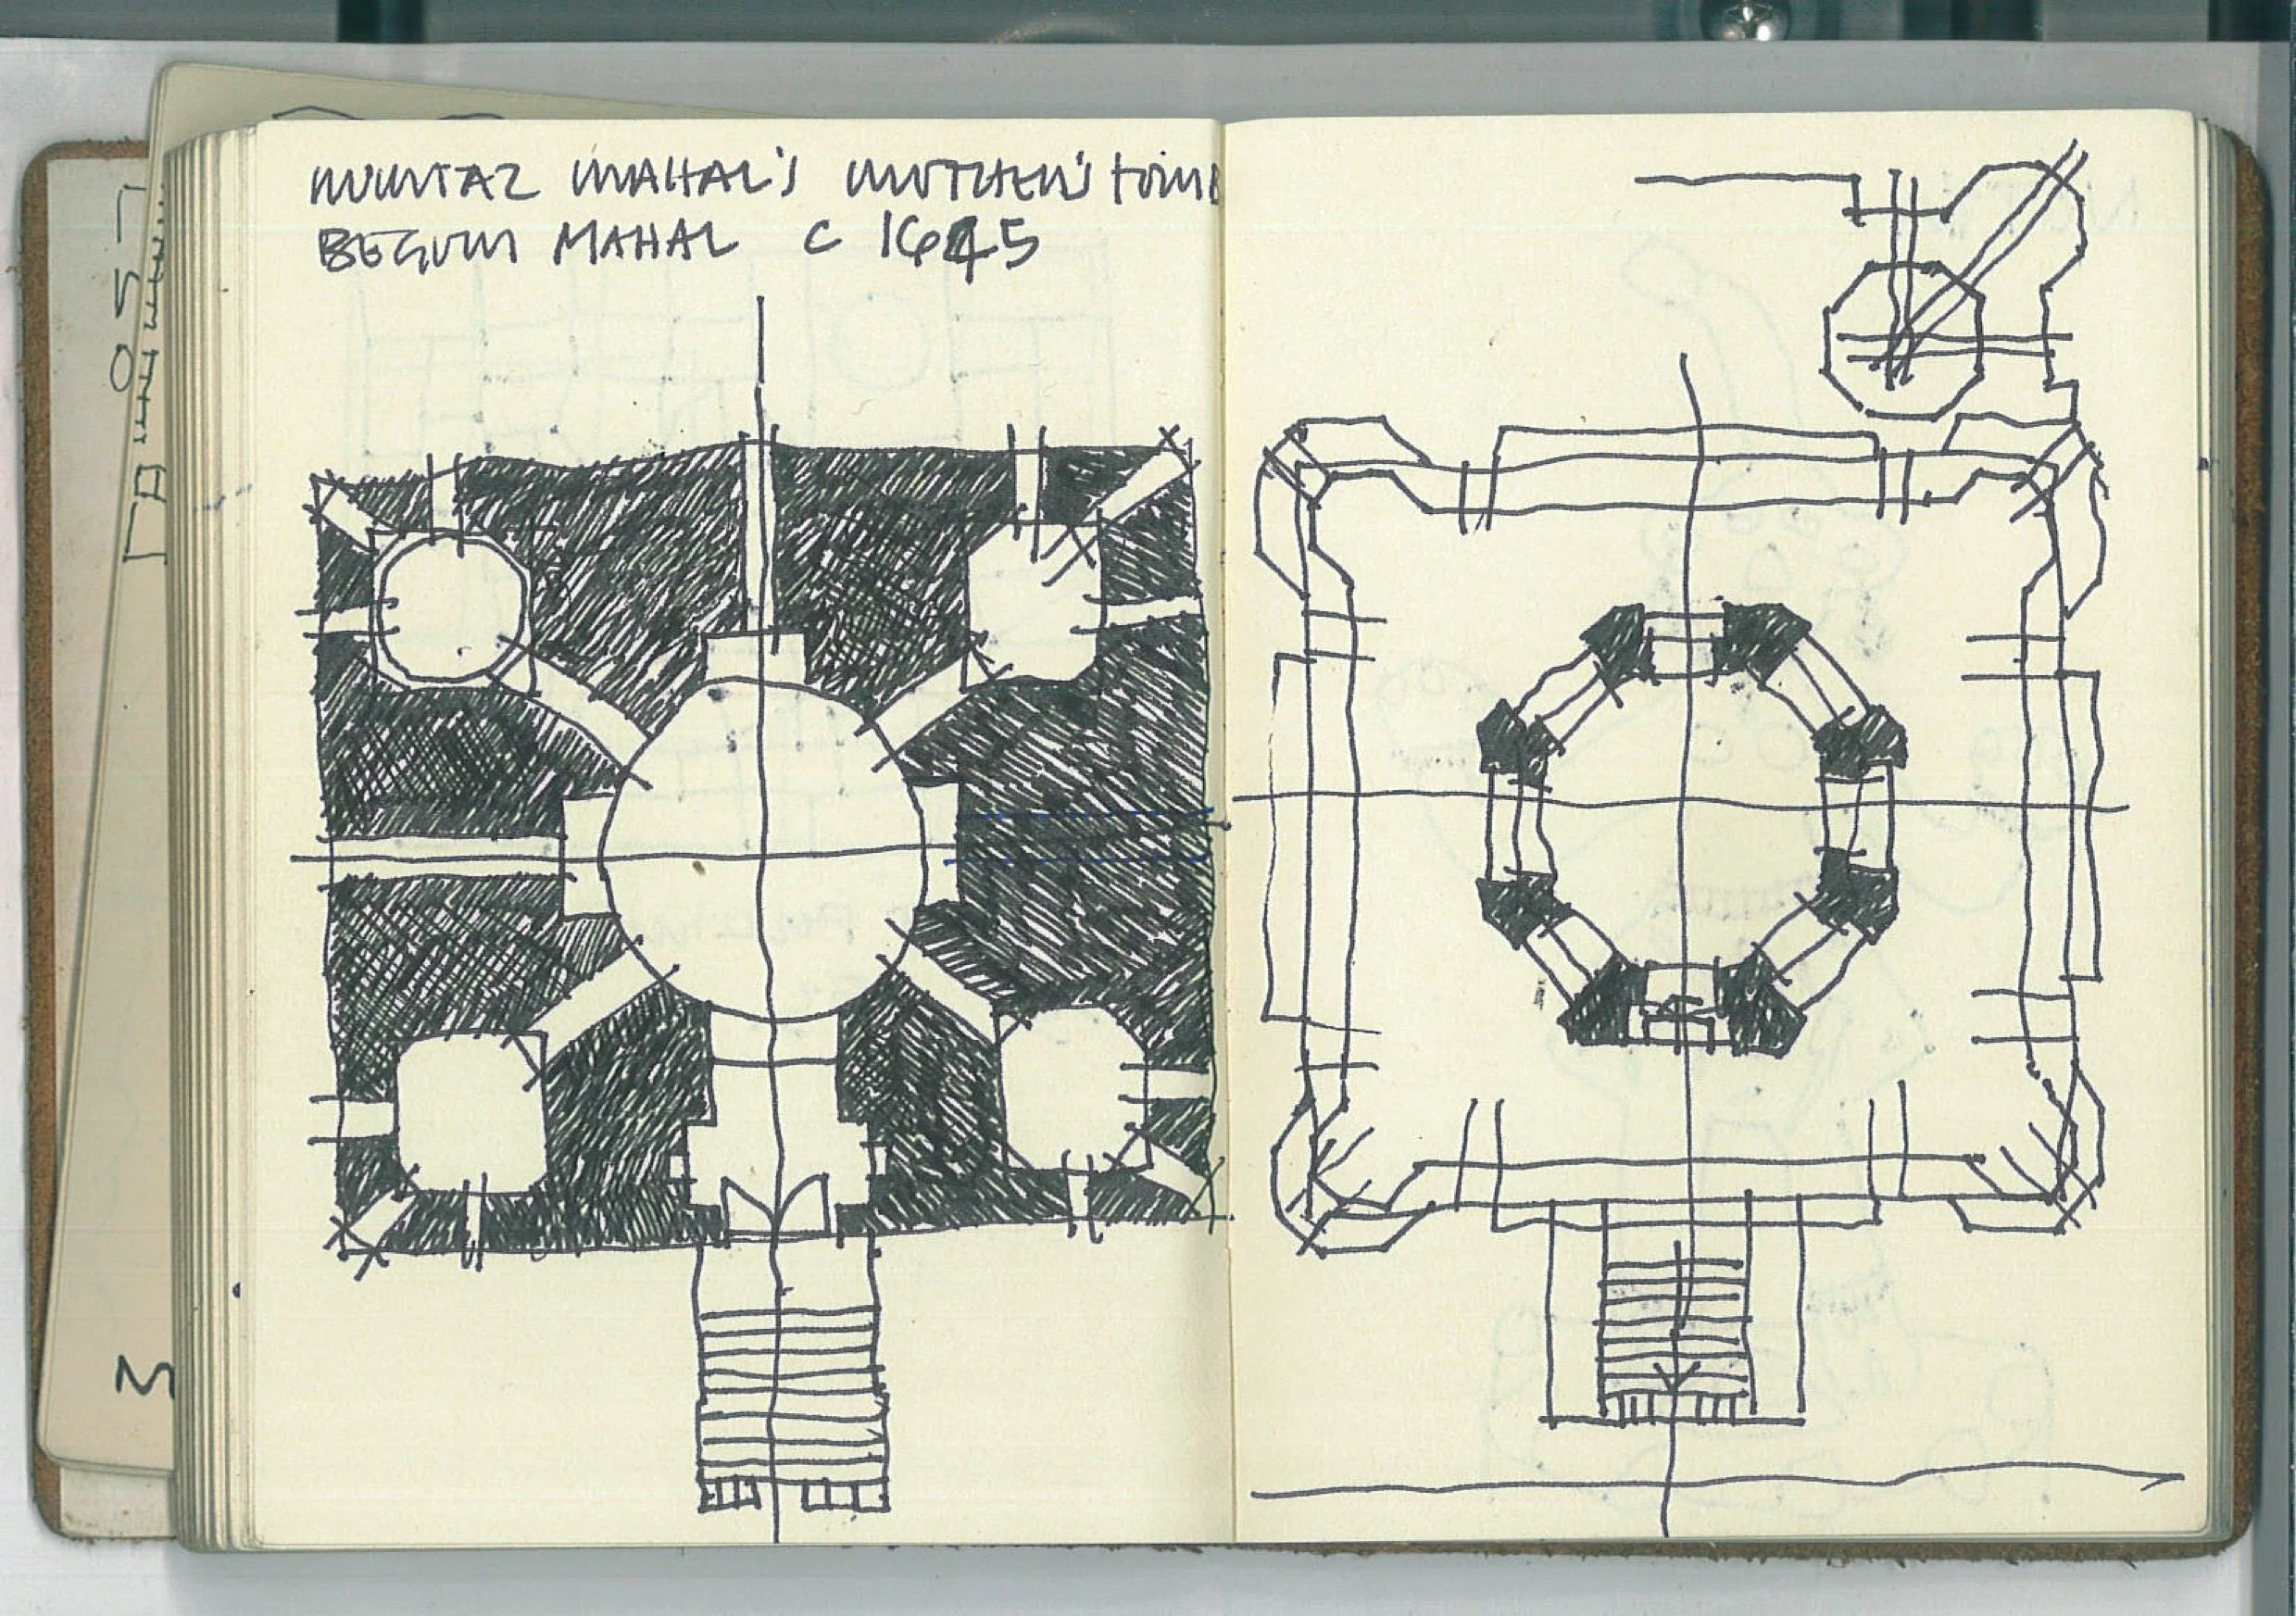 MUMTAZ MAHAL'S MOTHER'S TOMB
BEGUM MAHAL C 1645